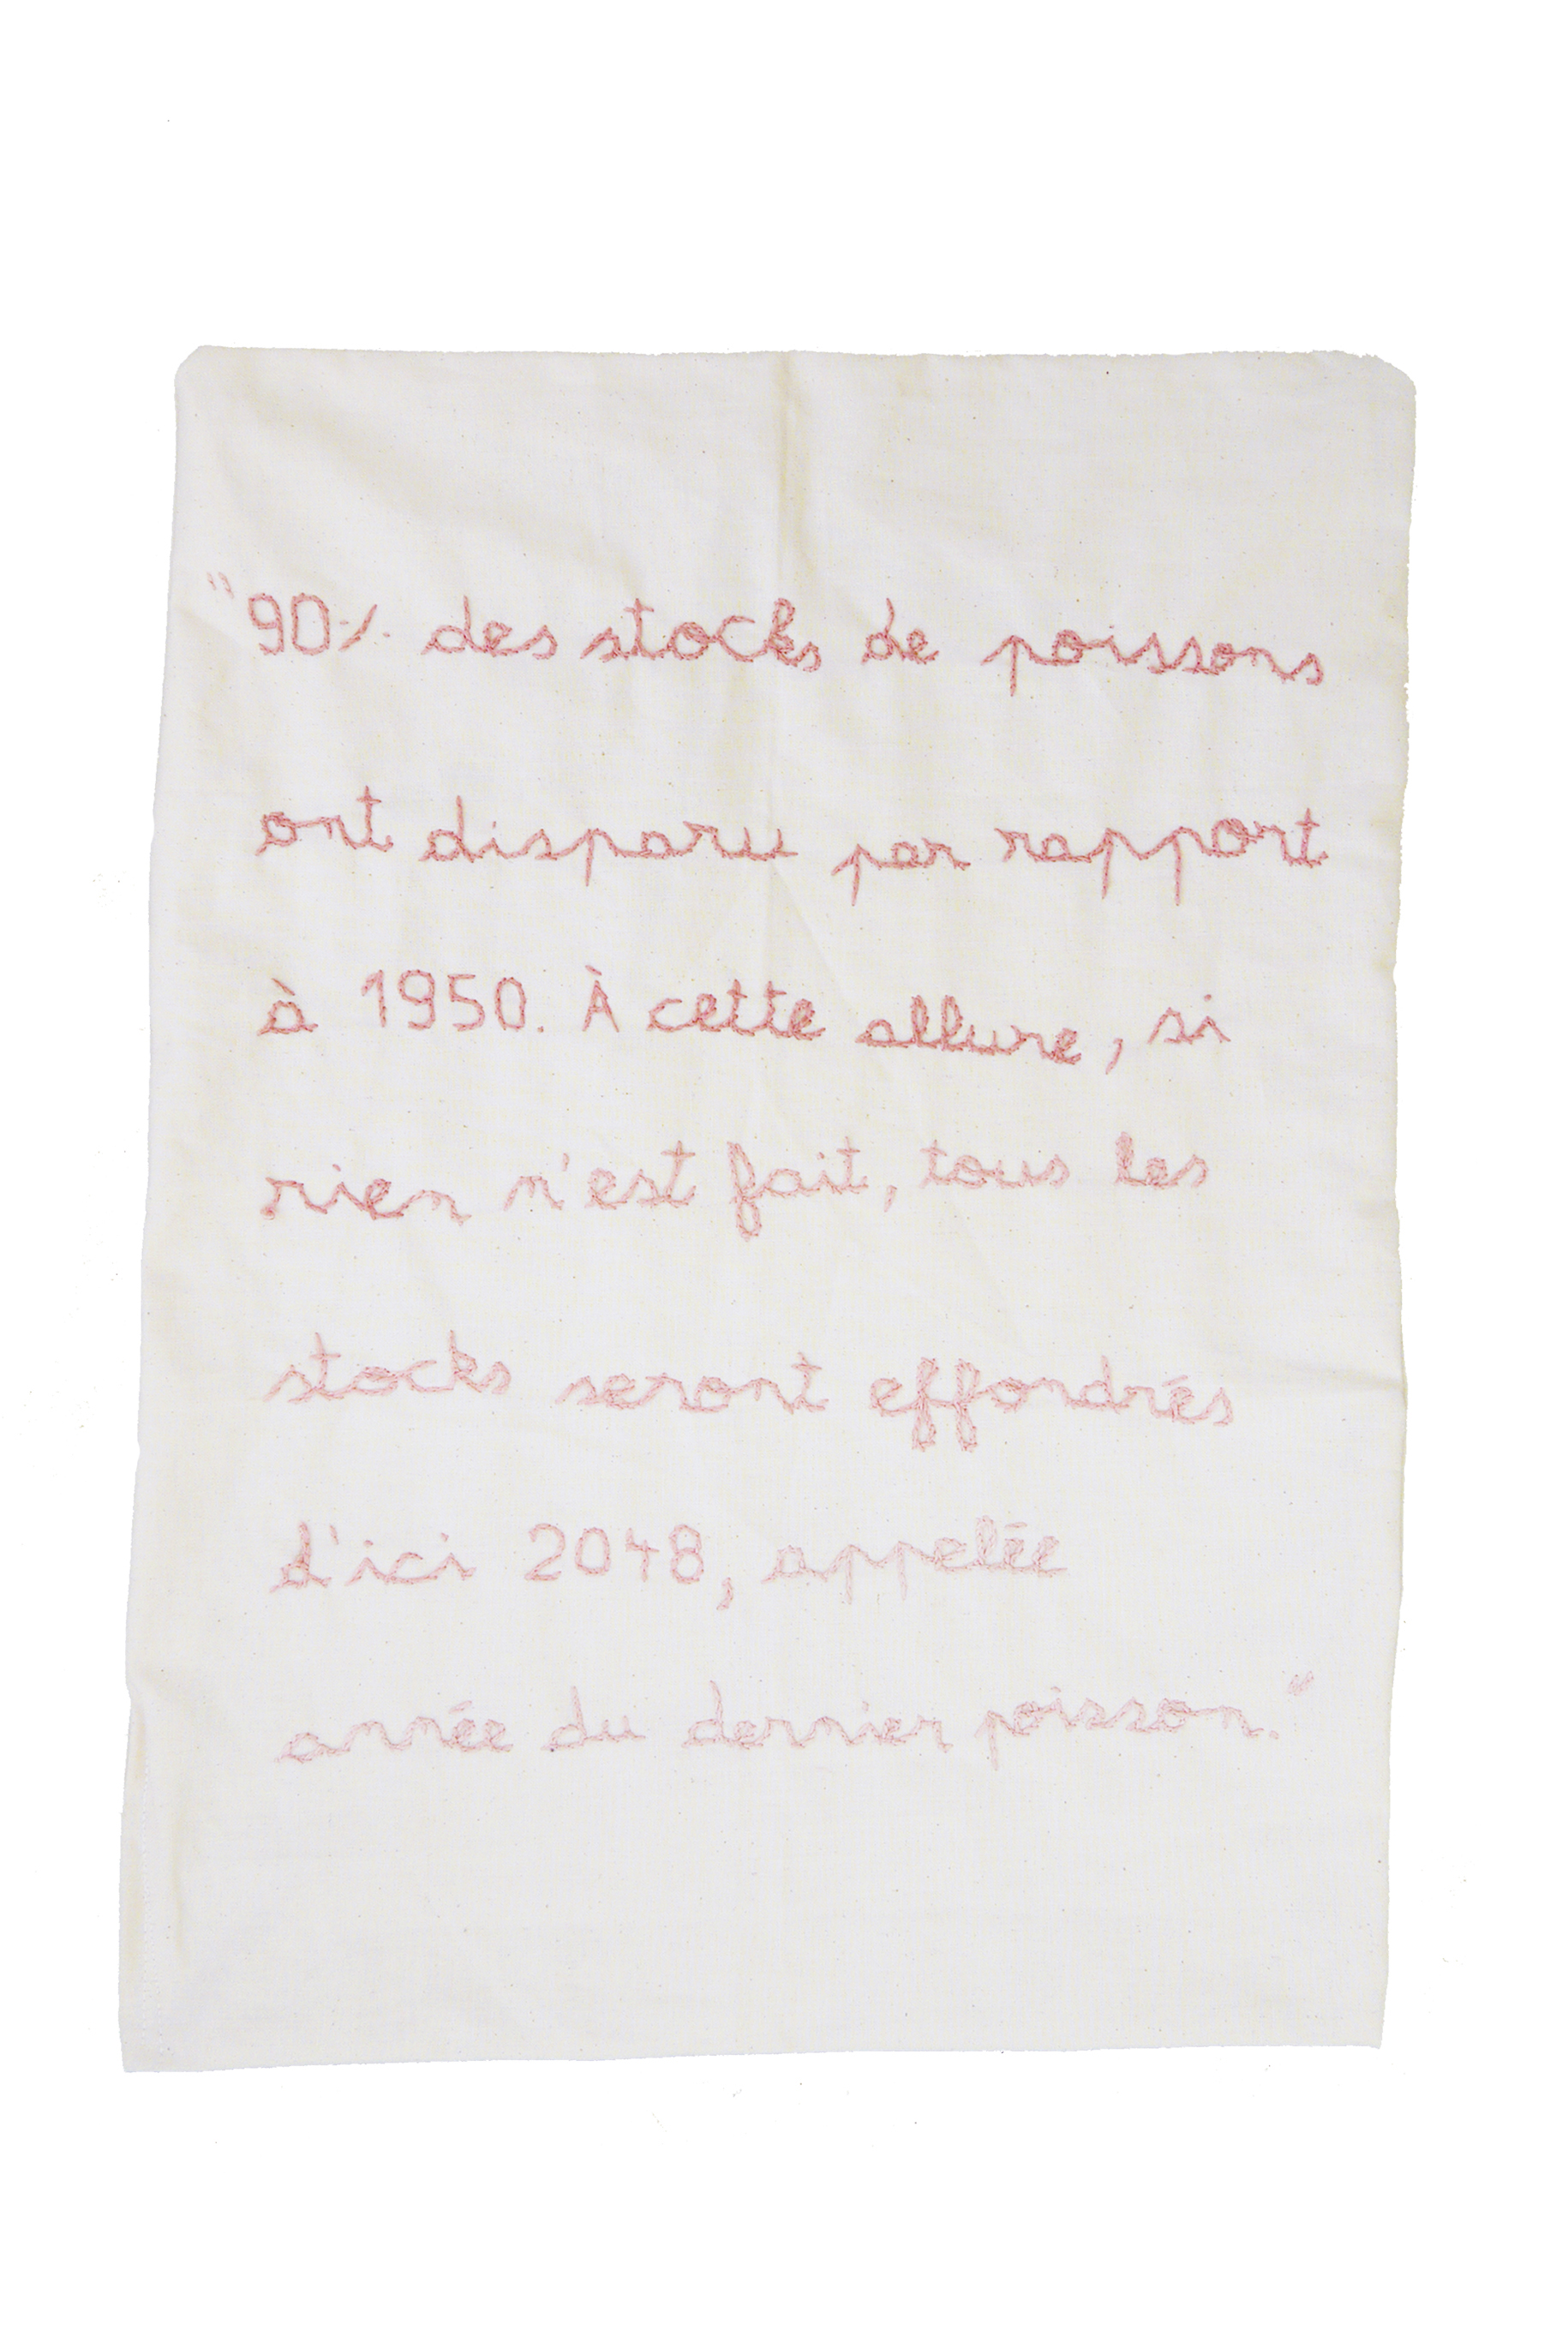 "90% des stocks de poissons
ont disparu par rapport
à 1950. À cette allure, si
rien n'est fait, tous les
stocks seront effondrés
d'ici 2048, appelée
année du dernier poisson."